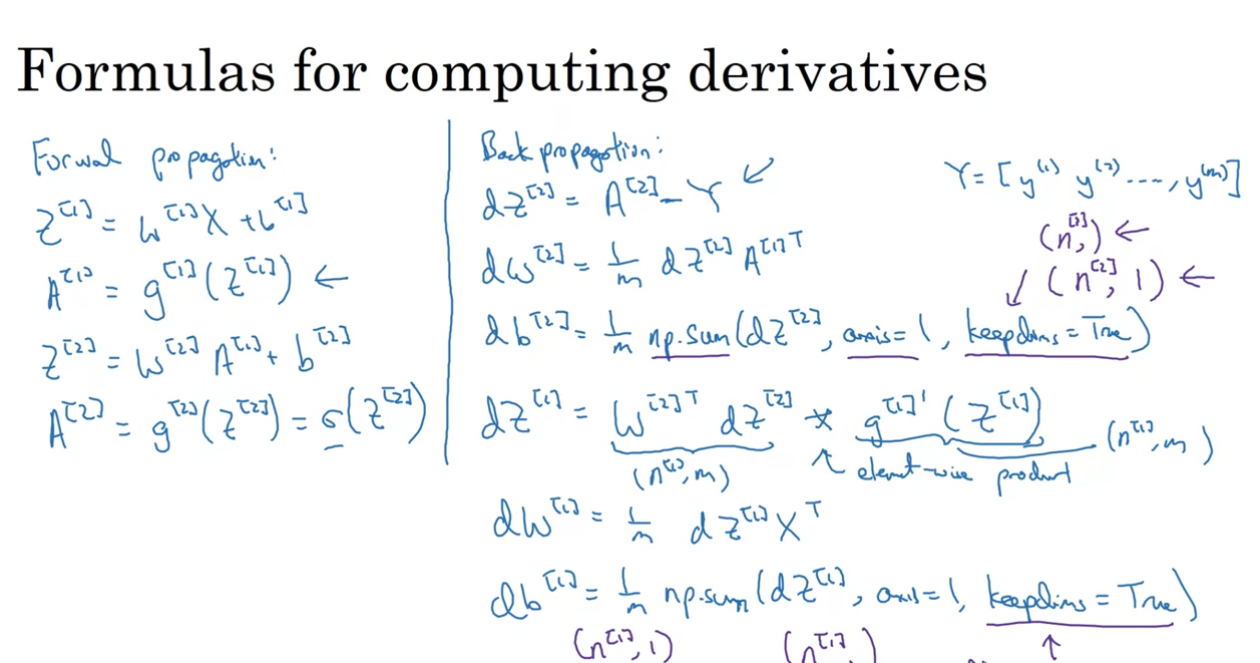 Formulas for computing derivatives
Forwal propagation:
Z[1] = W[1]X + b[1]
A[1] = g[1](Z[1]) ←
Z[2] = W[2] A[1] + b[2]
A[2] = g[2](Z[2]) = σ(Z[2])
Back propagation:
dZ[2] = A[2] - Y ↙
dW[2] = 1/m dZ[2] A[1]T
db[2] = 1/m np.sum(dZ[2], axis=1, keepdims=True)
dZ[1] = W[2]T dZ[2] * g[1]'(Z[1])
(n[1], m) ↖ element-wise product (n[1], m)
dW[1] = 1/m dZ[1] X^T
db[1] = 1/m np.sum(dZ[1], axis=1, keepdims=True)
(n[1], 1) (n[1],) ↑
Y = [y(1) y(2) ...., y(m)]
(n[2],) ←
↙ (n[2], 1) ←